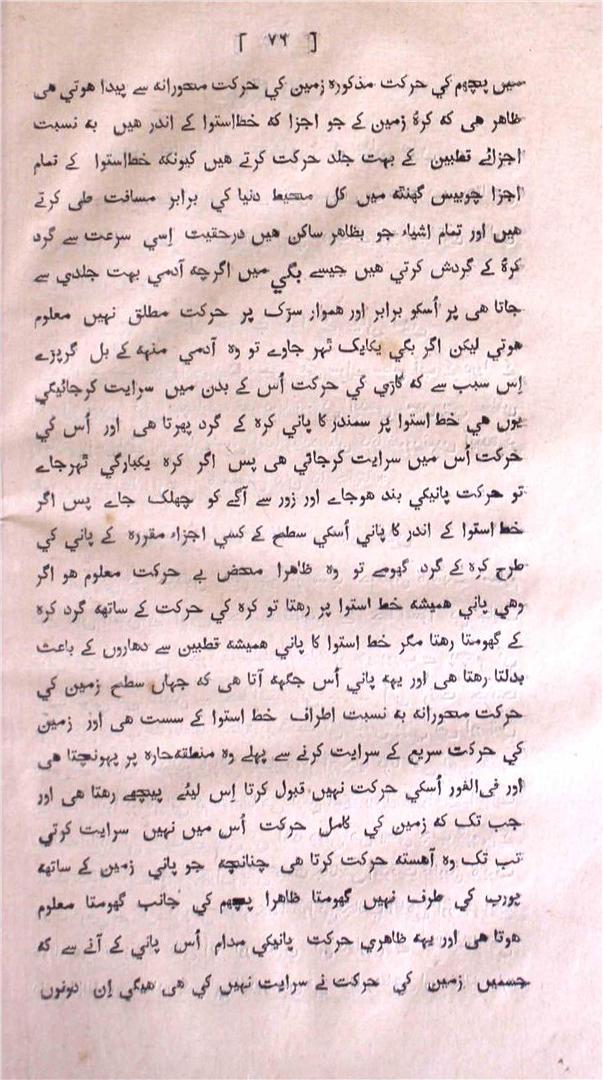 [ ۷۹ ]
میں پچھم کي حرکت مذکورہ زمین کي حرکت محورانہ سے پیدا ھوتي ھی
ظاھر ھی کہ کرۂ زمین کے جو اجزا کہ خط‌استوا کے اندر ھیں بہ نسبت
اجزائے قطبین کے بہت جلد حرکت کرتے ھیں کیونکہ خط‌استوا کے تمام
اجزا چوبیس گھنٹہ میں کل محیط دنیا کي برابر مسافت طی کرتے
ھیں اور تمام اشیاء جو بظاھر ساکن ھیں درحقیت اِسي سرعت سے گرد
کرۂ کے گردش کرتي ھیں جیسے بگي میں اگرچہ آدمي بہت جلدي سے
جاتا ھی پر اُسکو برابر اور ھموار سڑک پر حرکت مطلق نہیں معلوم
ھوتي لیکن اگر بگي یکایک ٹہر جاوے تو وہ آدمي منہہ کے بل گرپڑے
اِس سبب سے کہ گاڑي کي حرکت اُس کے بدن میں سرایت کرجائیگي
یوں ھي خط استوا پر سمندر کا پاني کرہ کے گرد پھرتا ھی اور اُس کي
حرکت اُس میں سرایت کرجاتي ھی پس اگر کرہ یکبارگي ٹہرجاے
تو حرکت پانیکي بند ھوجاے اور زور سے آگے کو چھلک جاے پس اگر
خط استوا کے اندر کا پاني اُسکي سطح کے کسي اجزاء مقررہ کے پاني کي
طرح کرہ کے گرد گھومے تو وہ ظاھرا محض بے حرکت معلوم ھو اگر
وھي پاني ھمیشہ خط استوا پر رھتا تو کرہ کي حرکت کے ساتھہ گرد کرہ
کے گھومتا رھتا مگر خط استوا کا پاني ھمیشہ قطبین سے دھاروں کے باعث
بدلتا رھتا ھی اور یہہ پاني اُس جگہہ آتا ھی کہ جہاں سطح زمین کي
حرکت محورانہ بہ نسبت اطراف خط استوا کے سست ھی اور زمین
کي حرکت سریع کے سرایت کرنے سے پہلے وہ منطقہ‌حارہ پر پہونچتا ھی
اور في‌الفور اُسکي حرکت نہیں قبول کرتا اِس لیئے پیچھے رھتا ھی اور
جب تک کہ زمین کي کامل حرکت اُس میں نہیں سرایت کرتي
تب تک وہ آھستہ حرکت کرتا ھی چنانچہ جو پاني زمین کے ساتھہ
پورب کي طرف نہیں گھومتا ظاھرا پچھم کي جانب گھومتا معلوم
ھوتا ھی اور یہہ ظاھري حرکت پانیکي مدام اُس پاني کے آنے سے کہ
جسمیں زمین کي حرکت نے سرایت نہیں کي ھی ھیگي اِن دونوں